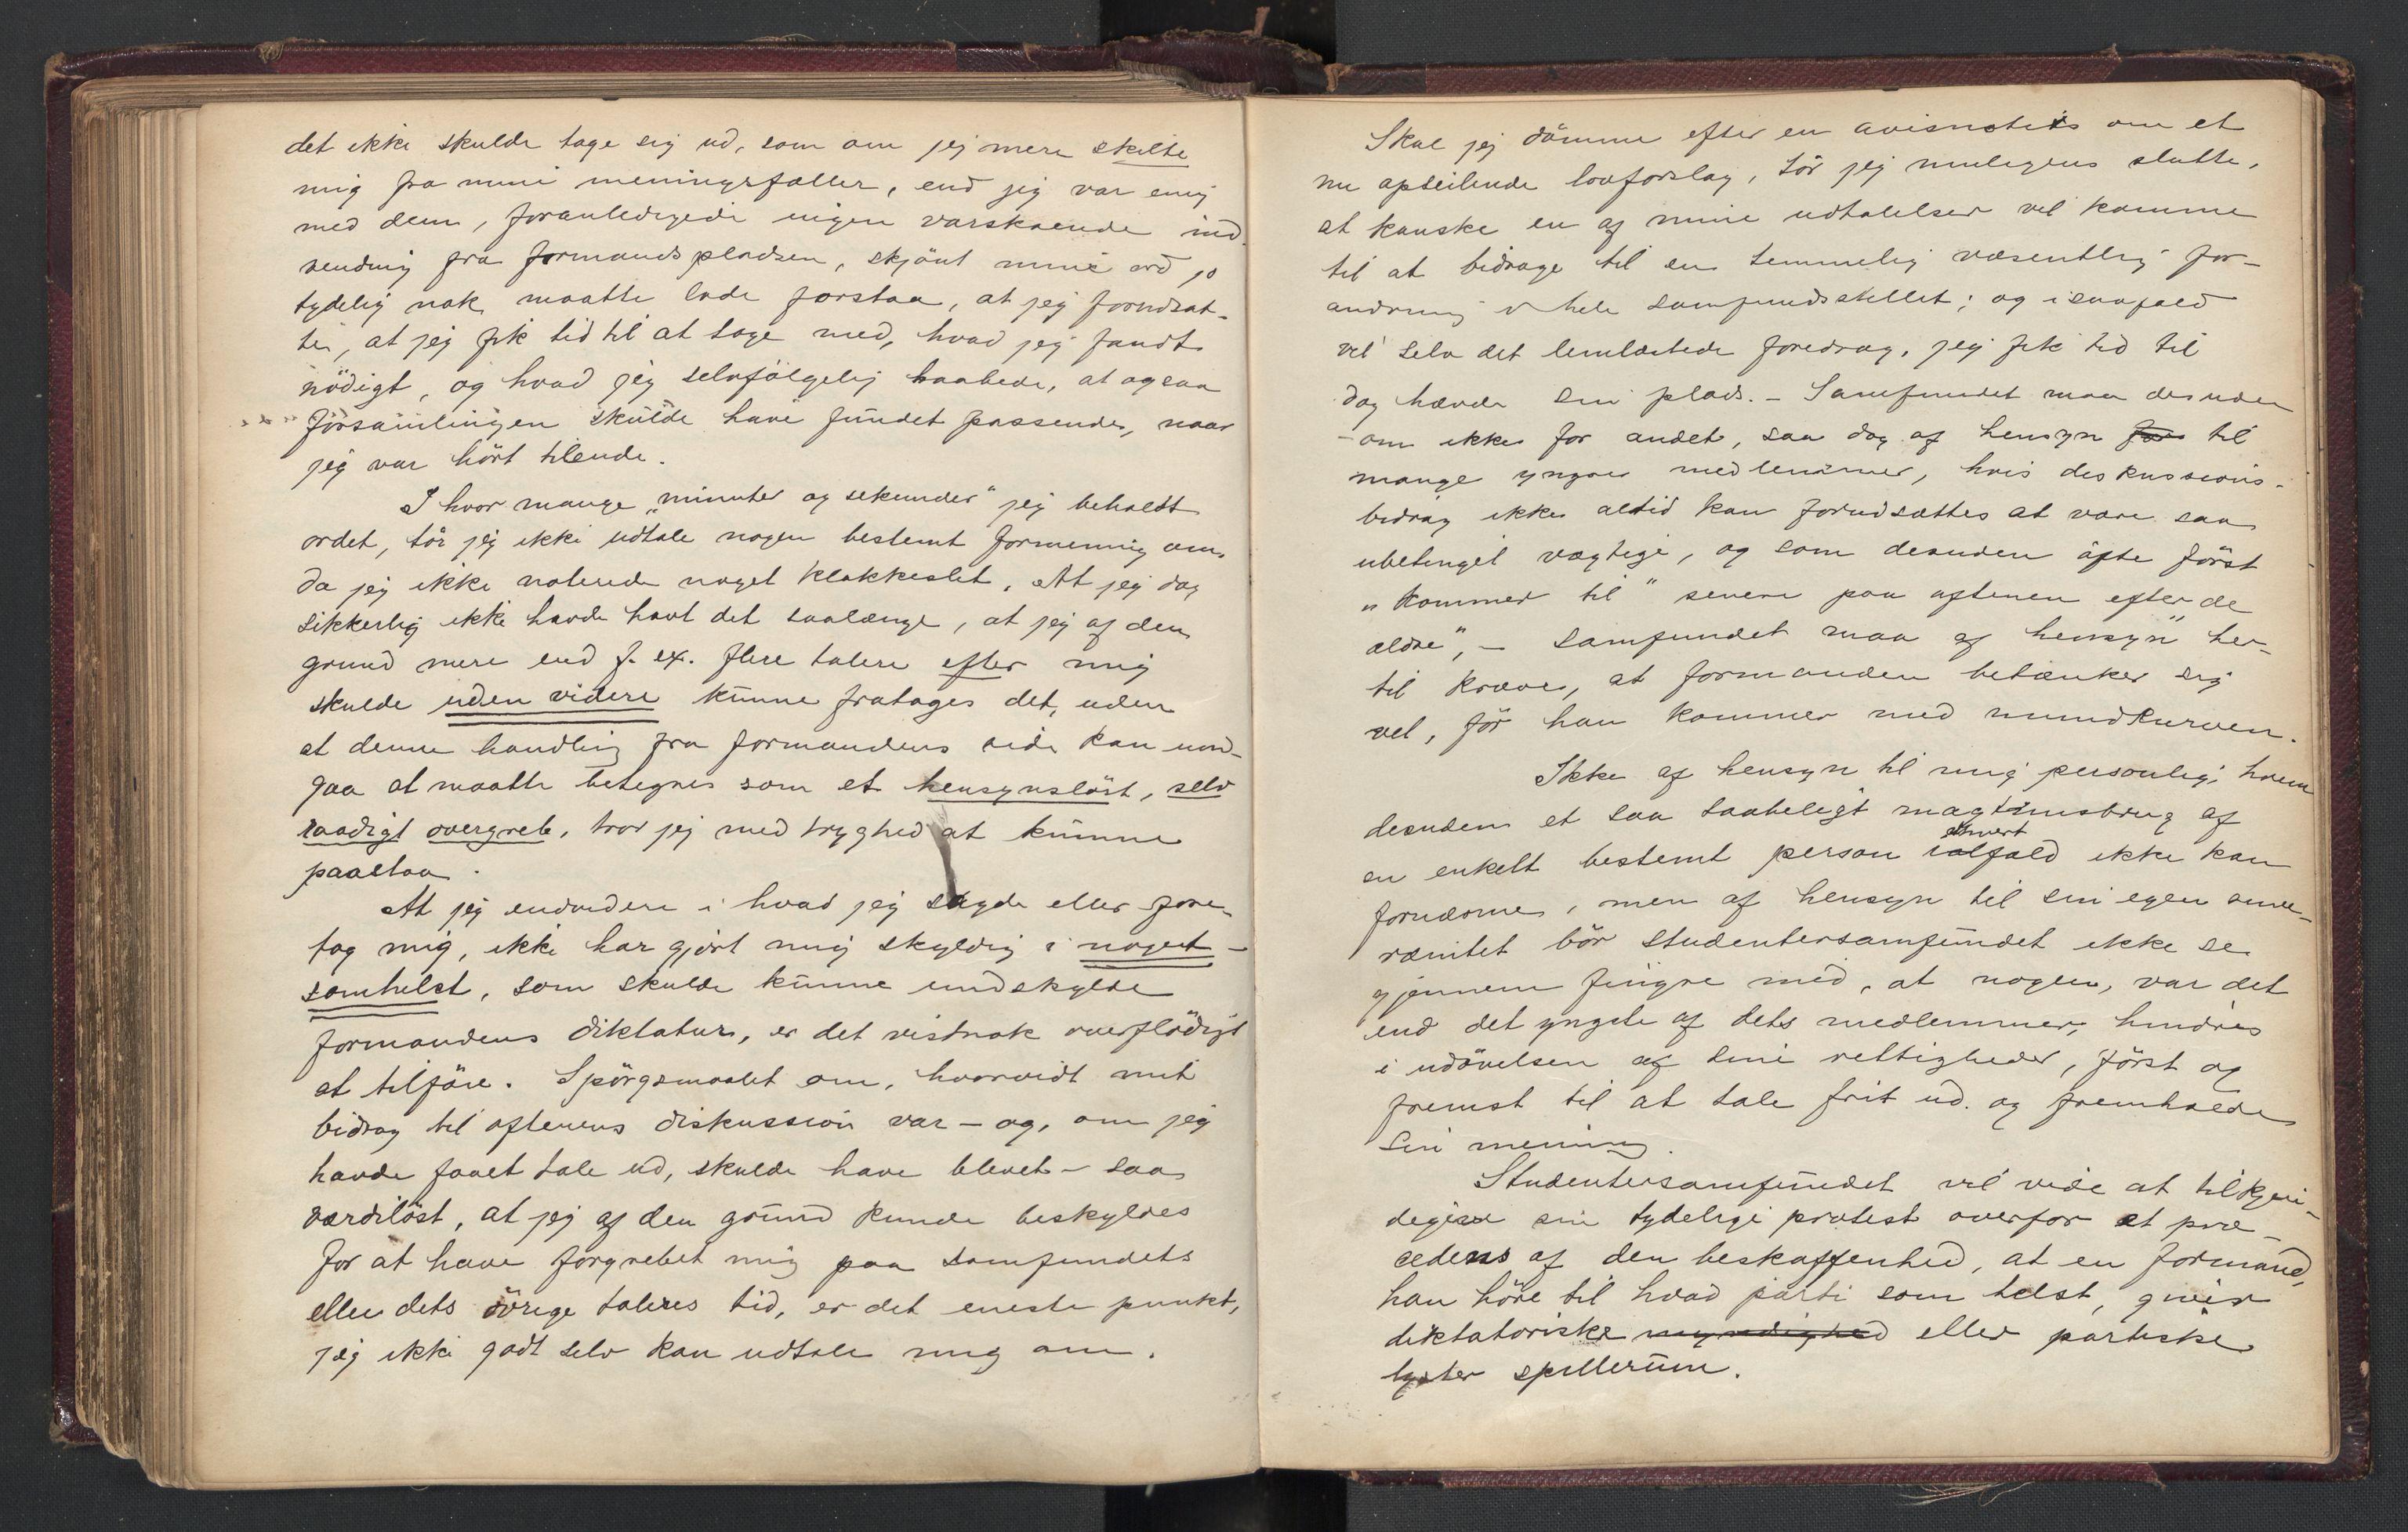 det ikke skulde tage sig ud, som om jeg mere skilte
mig fra mine meningsfæller, end jeg var enig
med dem, foranledigede ingen varskoende ind-
vending fra formandspladsen, skjönt mine ord jo
tydelig nok maatte lade forstaa, at jeg forudsat-
te, at jeg fik tid til at tage med, hvad jeg fandt
nödigt, og hvad jeg selvfölgelig haabede, at ogsaa
forsamlingen skulde have fundet passende, naar
jeg var hört tilende.
I hvor mange „minuter og sekunder" jeg beholdt
ordet, tör jeg ikke udtale nogen bestemt formening om,
da jeg ikke noterede noget klokkeslet. At jeg dog
sikkerlig ikke havde havt det saalænge, at jeg af den
grund mere end f. ex. flere talere efter mig
skulde uden videre kunne fratages det, uden
at denne handling fra formandens side kan und-
gaa at maatte betegnes som et hensynslöst, selv
raadigt overgreb, tror jeg med tryghed at kunne
paastaa.
At jeg endvidere i hvad jeg sagde eller fore-
tog mig, ikke har gjort mig skyldig i noget-
somhelst, som skulde kunne undskylde
formandens diktatur, er det vistnok overflödigt
at tilföie. Spörgsmaalet om, hvorvidt mit
bidrag til aftenens diskussion var – og, om jeg
havde faaet tale ud, skulde have blevet – saa
værdilöst, at jeg af den grund kunde beskyldes
for at have forgrebet mig paa samfundets
eller dets övrige taleres tid, er det eneste punkt,
jeg ikke godt selv kan udtale mig om.
Skal jeg dömme efter en avisnotis om et
nu opseilende lovforslag, tör jeg muligens slutte,
at kanske en af mine udtalelser vil komme
til at bidrage til en temmelig væsentlig for-
andring i hele samfundsstellet; og isaafald
vil selv det lemlæstede foredrag, jeg fik tid til
dog hævde sin plads. – Samfundet maa desuden
– om ikke for andet, saa dog af hensyn for til
mange yngre medlemmer, hvis diskussions-
bidrag ikke altid kan forudsættes at være saa
ubetinget vægtige, og som desuden ofte först
„kommer til" senere paa aftenen efter de
ældre", – samfundet maa af hensyn her-
til kræve, at formanden betænker sig
vel, för han kommer med mundkurven.
Ikke af hensyn til mig personlig; hvem
desuden et saa taabeligt magtmisbrug af
en enkelt bestemt person ialfald ikke kan
fornærme, men af hensyn til sin egen suve-
rænitet bör studentersamfundet ikke se
gjennem fingre med, at nogen, var det
end det yngste af dets medlemmer, hindres
i udövelsen af sine rettigheder, först og
fremst til at tale frit ud og fremholde
sin mening.
Studentersamfundet vil vide at tilkjen-
degive sin tydelige protest overfor et præ-
cedens af den beskaffenhed, at en formand,
han höre til hvad parti som helst, giver
diktatoriske myndighed eller partiske
lyster spillerum.